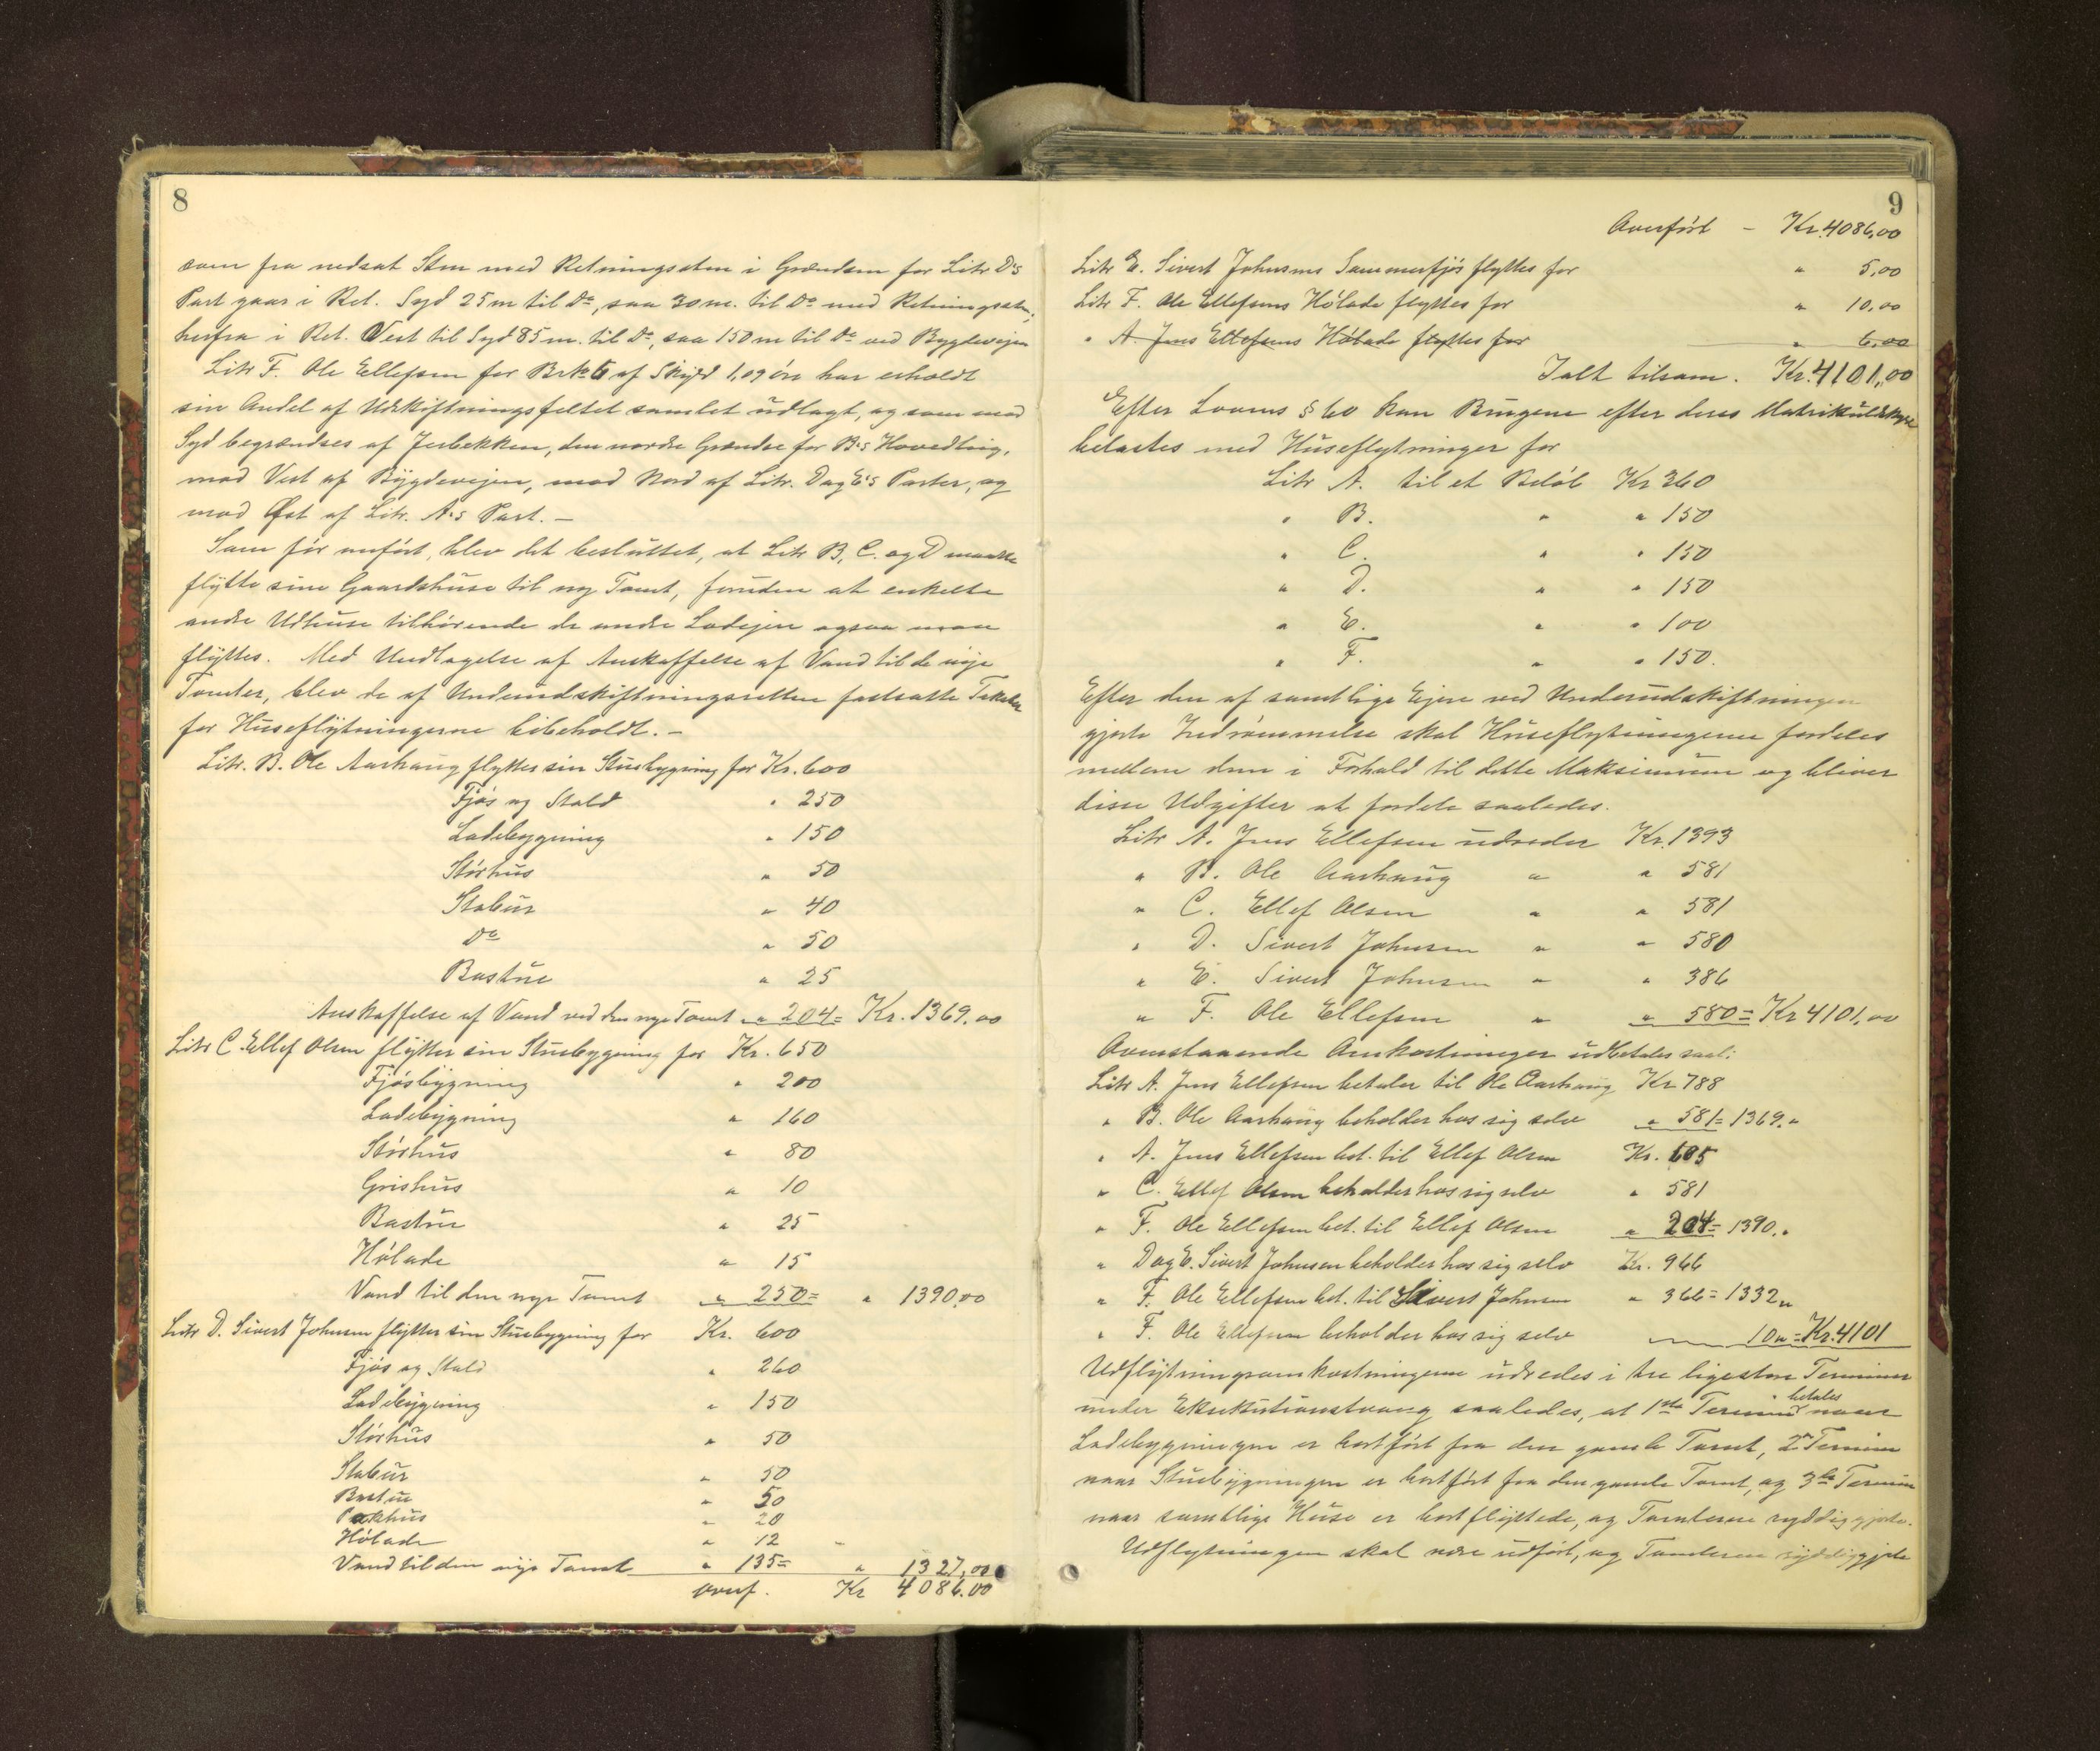 8
som fra nedsat Sten med Retningssten i Grændsen for Litr D's
Part gaar i Ret. Syd 25 m til Do, saa 30 m. til Do med Retningssten,
herfra i Ret. Vest til Syd 85 m. til Do, saa 150 m til Do ved Bygdevejen
Litr F. Ole Ellefsen for Brk 6 af Skyld 1,09 öre har erholdt
sin Andel af Udskiftningsfeltet samlet udlagt, og som mod
Syd begrændses af Jerbekken, den nordre Grændse for B's Hovedteig,
mod Vest af Bygdevejen, mod Nord af Litr. D og E's Parter, og
mod Øst af Litr. A's Part. —
Som för anfört, blev det besluttet, at Litr B, C. og D maatte
flytte sine Gaardshuse til ny Tomt, foruden at enkelte
andre Udhuse tilhörende de andre Lodejere ogsaa maa
flyttes. Med Undtagelse af Anskaffelse af Vand til de nye
Tomter, blev de af Underudskiftningsretten fastsatte Takster
for Huseflytningerne bibeholdt. —
Litr. B. Ole Aarhaug flytter sin Stuebygning for Kr. 600
Fjös og Stald " 250
Ladebygning " 150
Störhus " 50
Stabur " 40
Do " 50
Bastue " 25
Anskaffelse af Vand ved den nye Tomt " 204 = Kr. 1369.00
Litr C. Ellef Olsen flytter sin Stuebygning for Kr. 650
Fjösbygning " 200
Ladebygning " 160
Störhus " 80
Grishus " 10
Bastue " 25
Hölade " 15
Vand til den nye Tomt " 250 = " 1390,00
Litr D. Sivert Johnsen flytter sin Stuebygning for Kr. 600
Fjös og Stald " 260
Ladebygning " 150
Störhus " 50
Stabur " 50
Bastue " 50
Pakhus " 20
Hölade " 12
Vand til den nye Tomt " 135 = " 1327,00
overf. Kr 4086.00
9
Overfört - Kr. 4086,00
Litr E. Sivert Johnsens Sommerfjös flyttes for " 5,00
Litr F. Ole Ellefsens Hölade flyttes for " 10,00
" A. Jens Ellefsens Hölade flyttes for " 6,00
Ialt tilsam. Kr. 4101,00
Efter Lovens § 60 kan Brugene efter deres Matrikulskyld
belastes med Huseflytninger for
Litr A. til et Belöb Kr 360
" B. " " 150
" C. " " 150
" D. " " 150
" E. " " 100
" F. " " 150.
Efter den af samtlige Ejere ved Underudskiftningen
gjorte Indrömmelse skal Huseflytningerne fordeles
mellem dem i Forhold til dette Maksimum og bliver
disse Udgifter at fordele saaledes.
Litr A. Jens Ellefsen udreder Kr. 1393
" B. Ole Aarhaug " " 581
" C. Ellef Olsen " " 581
" D. Sivert Johnsen " " 580
" E. Sivert Johnsen " " 386
" F. Ole Ellefsen " " 580 = Kr 4101,00
Ovenstaaende Omkostninger udbetales saal:
Litr A. Jens Ellefsen betaler til Ole Aarhaug Kr 788
" B. Ole Aarhaug beholder hos sig selv " 581 = 1369."
" A. Jens Ellefsen bet. til Ellef Olsen Kr. 605
" C. Ellef Olsen beholder hos sig selv " 581
" F. Ole Ellefsen bet. til Ellef Olsen " 204 = 1390."
" D og E. Sivert Johnsen beholder hos sig selv Kr. 966
" F. Ole Ellefsen bet. til Sivert Johnsen " 366 = 1332 "
" F. Ole Ellefsen beholder hos sig selv 10 " = Kr. 4101
Udflytningsomkostningerne udredes i tre ligestore Terminer
under Eksekutionstvang saaledes, at 1ste Termin betales naar
Ladebygningen er bortfört fra den gamle Tomt, 2n Termin
naar Stuebygningen er bortfört fra den gamle Tomt, og 3die Termin
naar samtlige Huse er bortflyttede, og Tomterne ryddiggjorte.
Udflytningen skal være udfört, og Tomterne ryddiggjorte